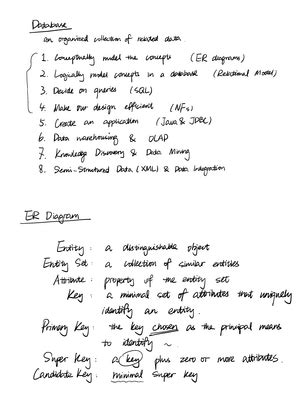 Database
an organized collection of related data.
1. Conceptually model the concepts (ER diagrams)
2. Logically model concepts in a database (Relational Model)
3. Decide on queries (SQL)
4. Make our design efficient (NFs)
5. Create an application (Java & JDBC)
6. Data warehousing & OLAP
7. Knowledge Discovery & Data Mining
8. Semi-Structured Data (XML) & Data Integration
ER Diagram
Entity: a distinguishable object
Entity Set: a collection of similar entities
Attribute: property of the entity set
Key: a minimal set of attributes that uniquely
identify an entity.
Primary Key: the key chosen as the principal means
to identify ~
Super Key: a key plus zero or more attributes.
Candidate Key: minimal super key